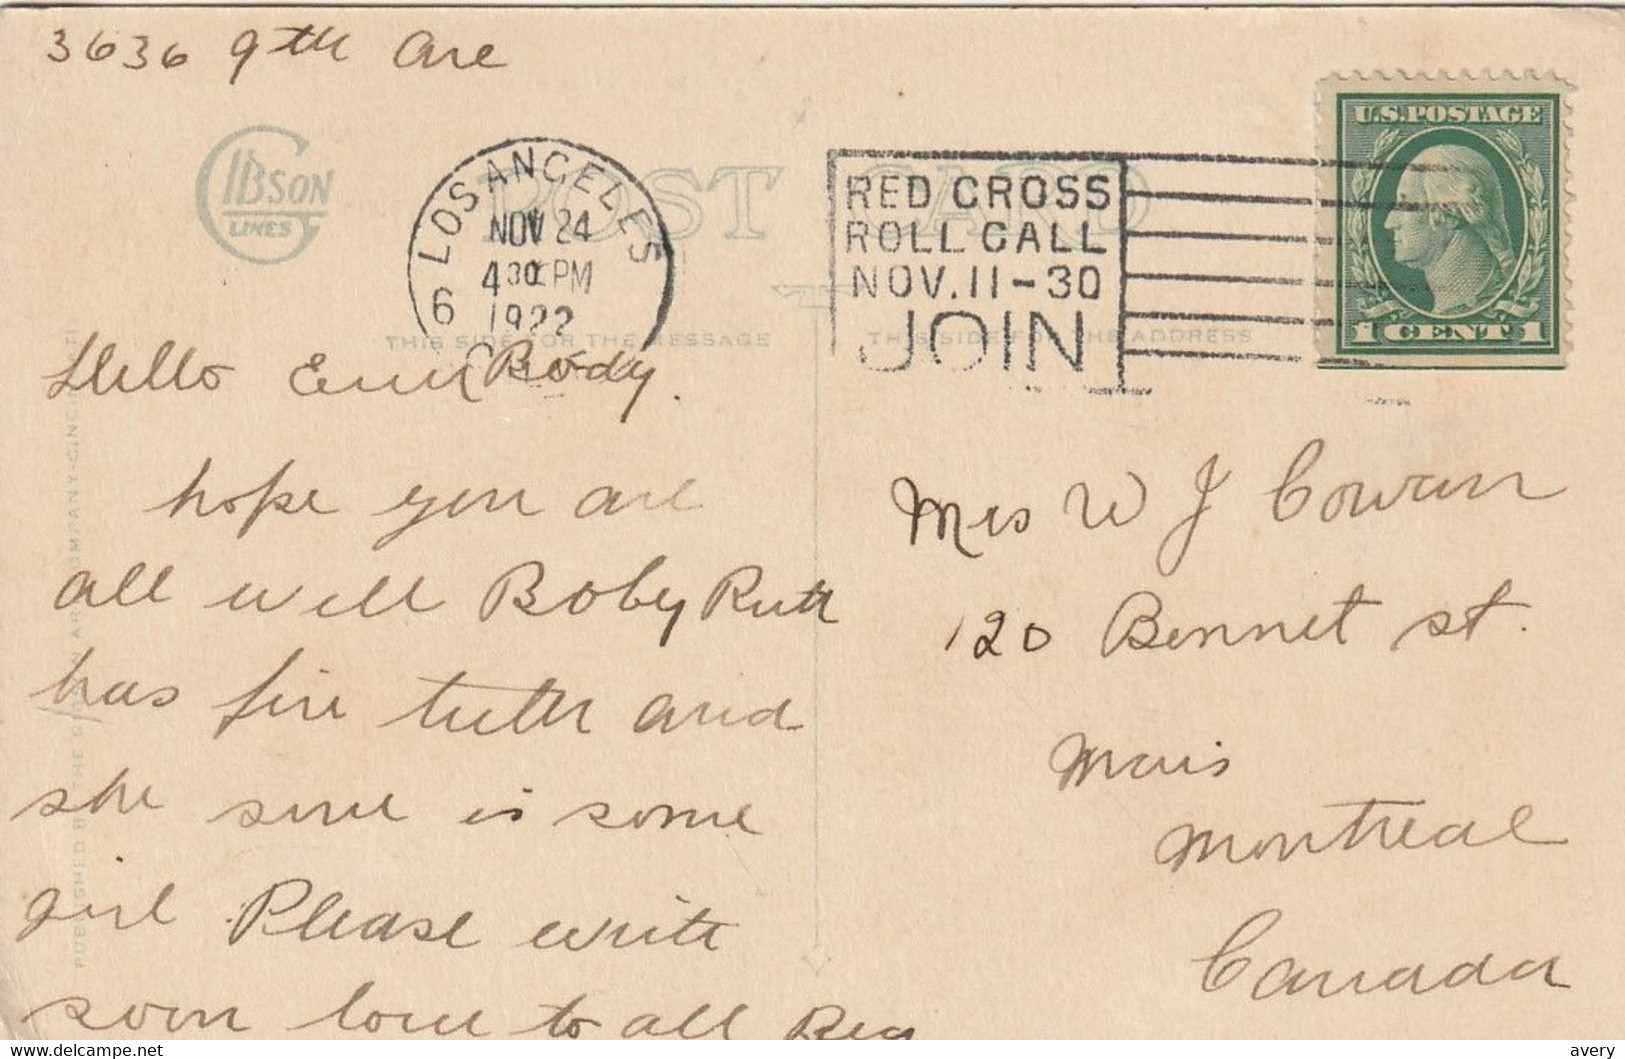 3636 9th Ave
GIBSON
LINES
POST CARD
LOS ANGELES
NOV 24
430 PM
1922
6
RED CROSS
ROLL CALL
NOV. 11-30
JOIN
U.S. POSTAGE
1 CENT 1
THIS SIDE FOR THE MESSAGE
THIS SIDE FOR THE ADDRESS
Hello Every Body.
hope you are
all well Boby Ruth
has five teeth and
she sure is some
girl Please write
soon love to all Reg
Mrs W J Cowan
120 Bennet st.
Mais
Montreal
Canada
PUBLISHED BY THE GIBSON ART COMPANY-CINCINNATI
www.delcampe.net
avery